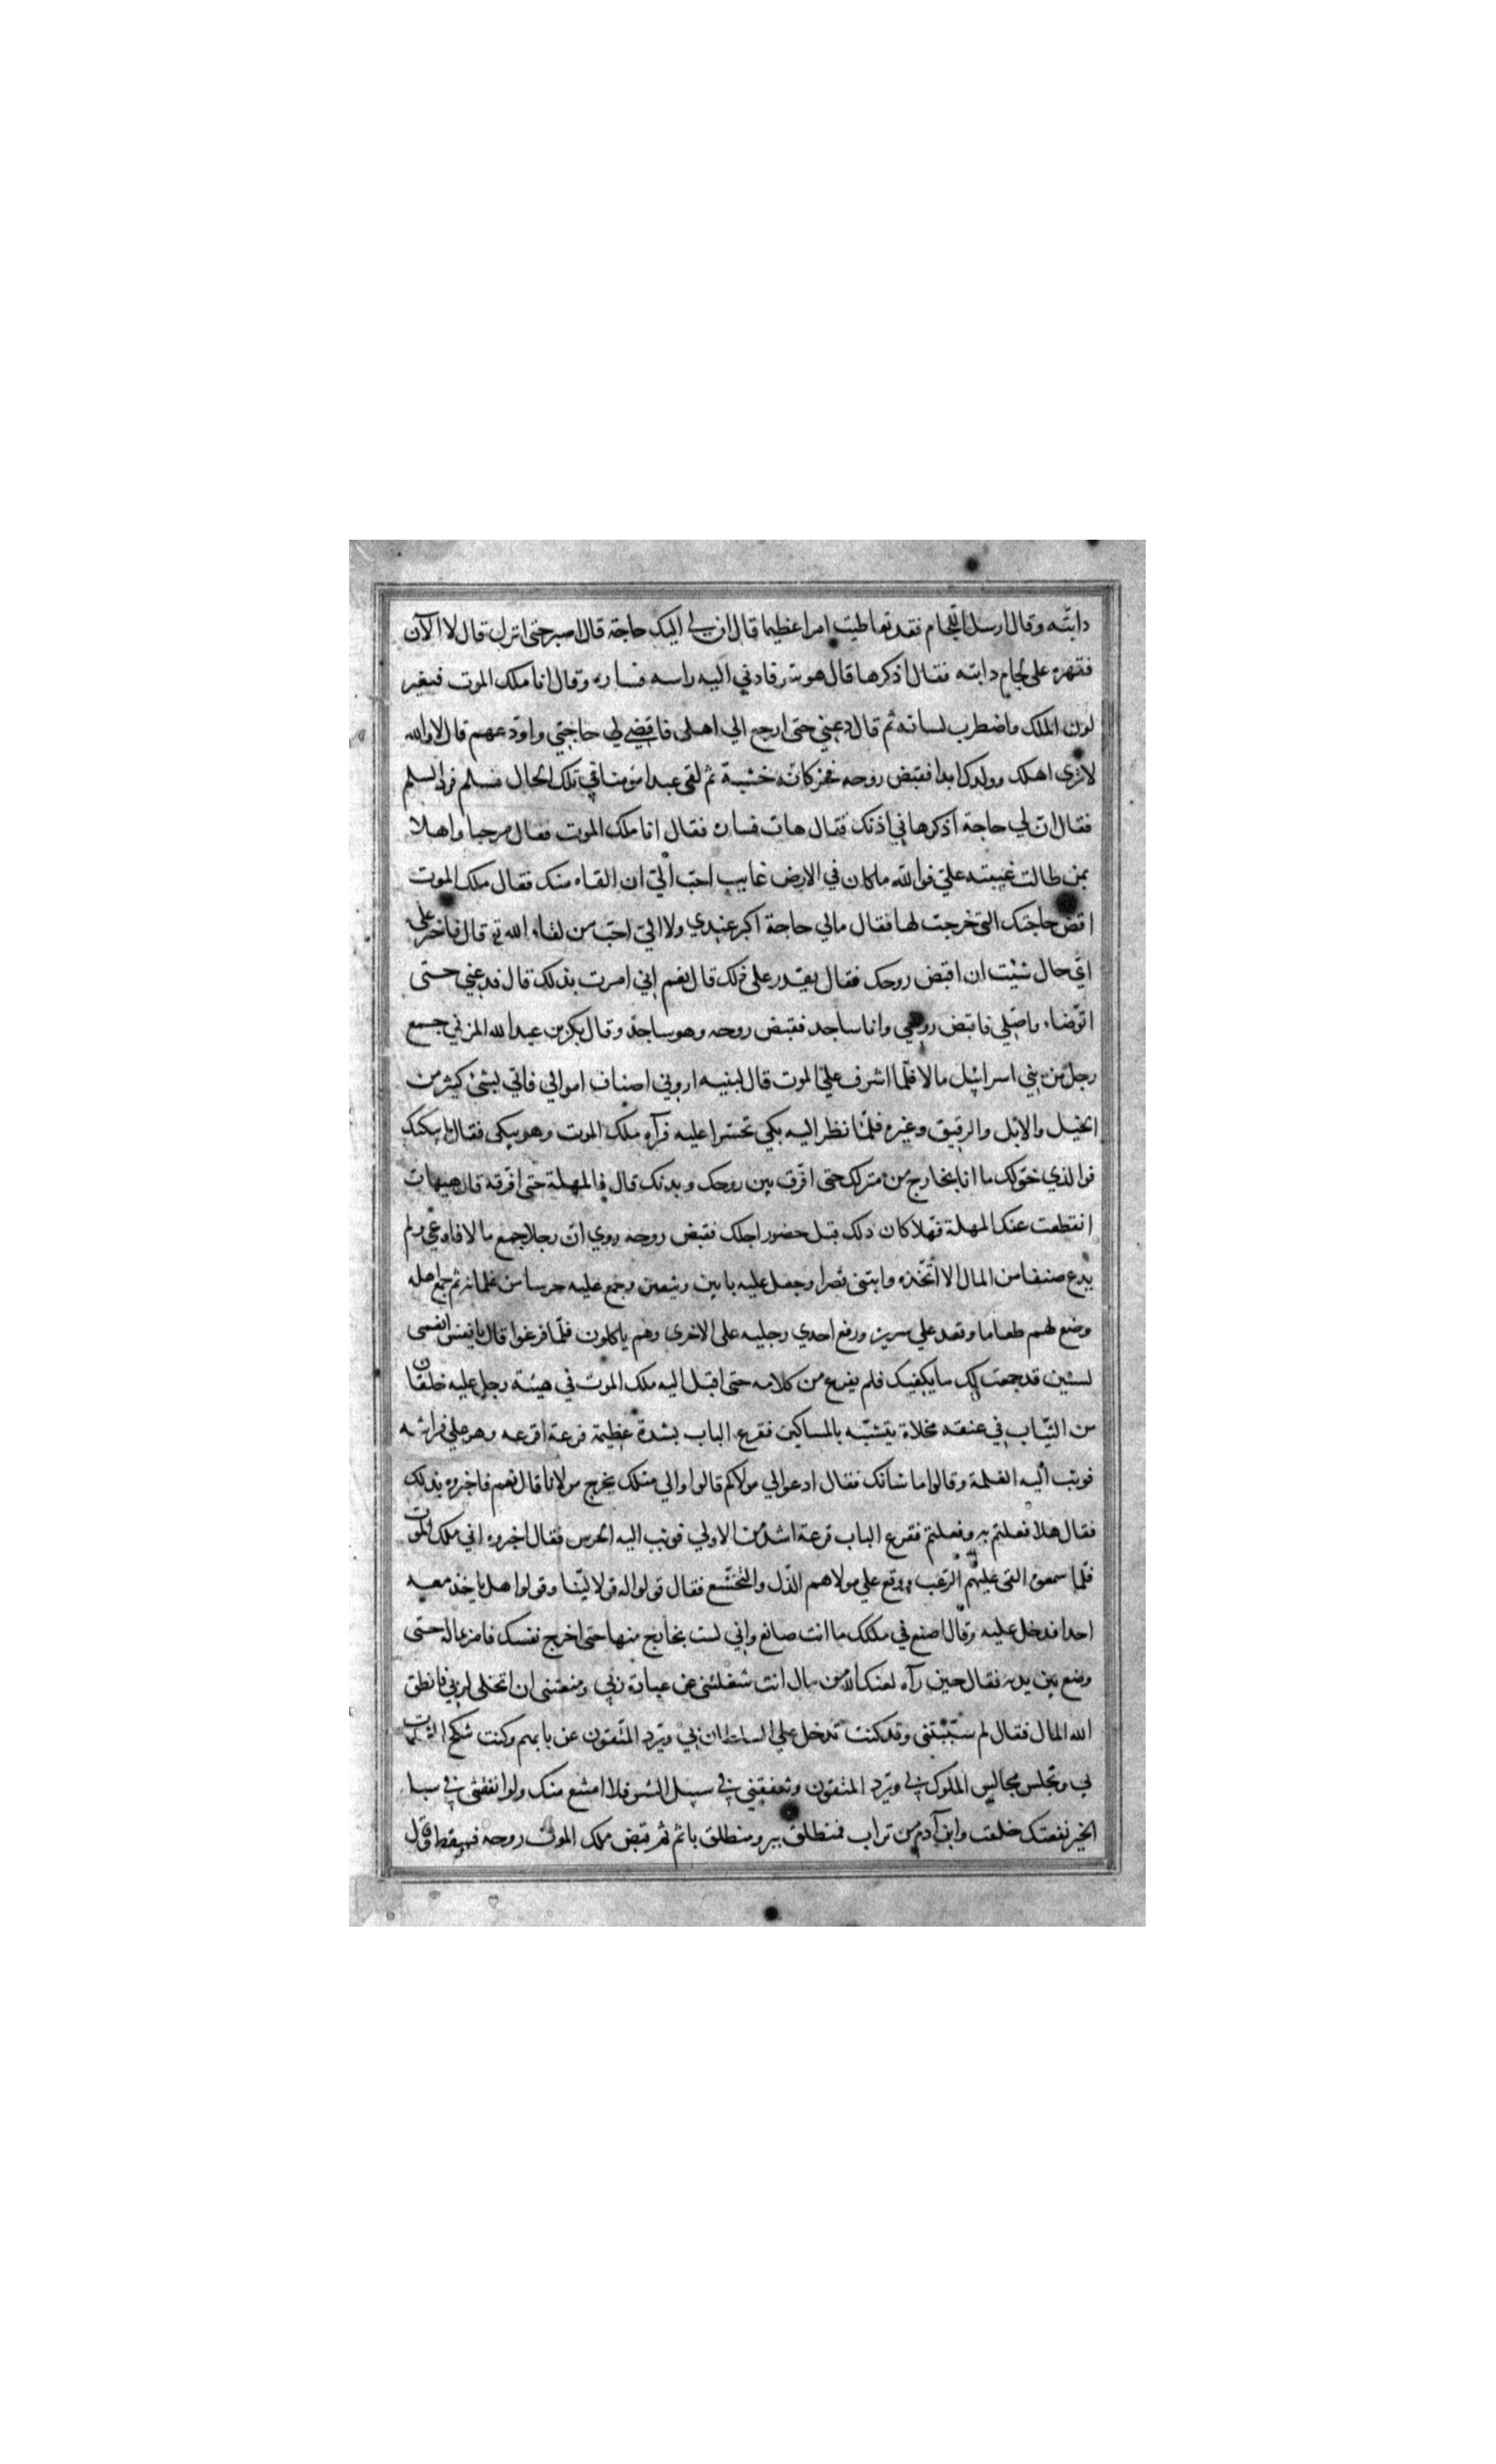 دابته وقال ارسل اللجام فقد تعاطيت امرا عظيما قال ان لي اليك حاجة قال اصبر حتى انزل قال لا الآن
فقهره على لجام دابته فقال اذكرها قال هو سر فادني اليه راسه فساره وقال انا ملك الموت فتغير
لون الملك واضطرب لسانه ثم قال دعني حتى ارجع الي اهلى فاقضي لي حاجتي واودعهم قال لا والله
لا ترى اهلك وولدك ابدا فقبض روحه فخر كانه خشبة ثم لقى عبدا مؤمنا في تلك الحال فسلم فرد السلم
فقال ان لي حاجة اذكرها في اذنك فقال هات فساره فقال انا ملك الموت فقال مرحبا واهلا
بمن طالت غيبته علي فوالله ما كان في الارض غايب احب الي ان القاه منك فقال ملك الموت
اقض حاجتك التى خرجت لها فقال مالي حاجة اكبر عندي ولا الي احب من لقاء الله تع قال فاختر على
اي حال شيت ان اقبض روحك فقال تقدر على ذلك قال نعم اني امرت بذلك قال فدعني حتى
اتوضاء واصلي فاقبض روحي وانا ساجد فقبض روحه وهو ساجد وقال بكر بن عبد الله المزني جمع
رجل من بني اسرائيل مالا فلما اشرف علي الموت قال لبنيه اروني اصناف اموالي فاتي بشئ كثير من
الخيل والابل والرقيق وغيره فلما نظر اليه بكي تحسرا عليه فرآه ملك الموت وهو يبكى فقال ما يبكيك
فوالذي خولك ما انا بخارج من منزلك حتى افرق بين روحك وبدنك قال فالمهلة حتى افرقه قال هيهات
انقطعت عنك المهلة فهلا كان ذلك قبل حضور اجلك فقبض روحه روي ان رجلا جمع مالا فاوعى ولم
يدع صنفا من المال الا اتخذه وابتنى قصرا وجعل عليه بابين وثيقين وجمع عليه حرسا من غلمانه ثم جمع اهله
وضع لهم طعاما وقعد علي سرير ورفع احدي رجليه على الاخرى وهم ياكلون فلما فرغوا قال يا نفس انعمى
لسنين قد جمعت لك ما يكفيك فلم يفرغ من كلامه حتى اقبل اليه ملك الموت في هيئة رجل عليه خلقان
من الثياب في عنقه مخلاة يتشبه بالمساكين فقرع الباب بشدة عظيمة قرعة افزعه وهو علي فراشه
فوثب اليه الغلمة وقالوا ما شانك فقال ادعوا لي مولاكم قالوا والي مثلك يخرج مولانا قال نعم فاخبروه بذلك
فقال هلا فعلتم به وفعلتم فقرع الباب قرعة اشد من الاولي فوثب اليه الحرس فقال اخبروه اني ملك الموت
فلما سمعوه القى عليهم الرعب ووقع علي مولاهم الذل والتخشع فقال قولوا له قولا لينا وقولوا هل ياخذ معه
احدا فدخل عليه وقال اصنع في ملكك ما انت صانع واني لست بخارج منها حتى اخرج نفسك فامر بماله حتى
وضع بين يديه فقال حين رآه لعنك الله من مال انت شغلتني عن عبادة ربي ومنعتنى ان اتخلى لربي فانطق
الله المال فقال لم سببتنى وقد كنت تدخل علي السلطان بي ويرد المتقون عن بابهم وكنت تنكح
بي وتجلس مجالس الملوك بي ويرد المتقون وتنفقني في سبيل الشر فلا امتنع منك ولو انفقتنى في سبيل
الخير نفعتك خلقت وابن آدم من تراب فمنطلق ببر ومنطلق باثم ثم قبض ملك الموت روحه فسقط قال